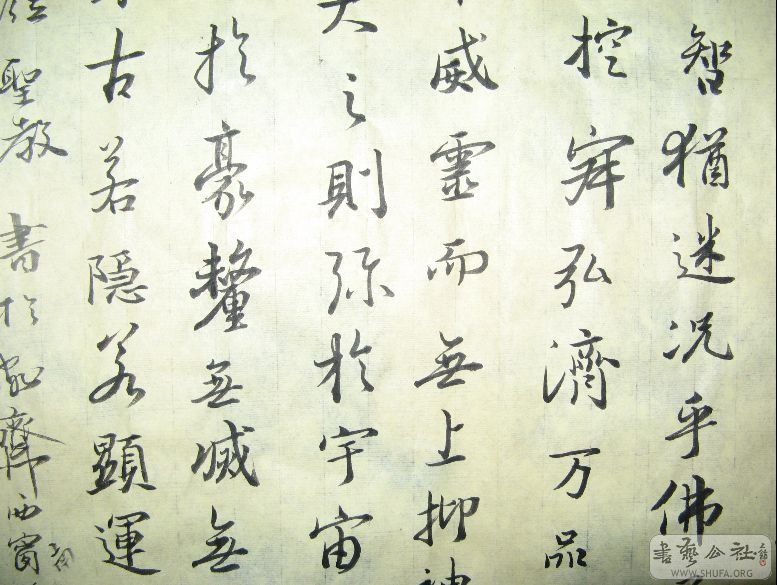 智猶迷況乎佛
控寂弘濟万品
威靈而無上抑神
大之則弥於宇宙
於豪釐無滅無
古若隱若顯運
聖教 書於 齋西窗
書藝公社
WWW.SHUFA.ORG